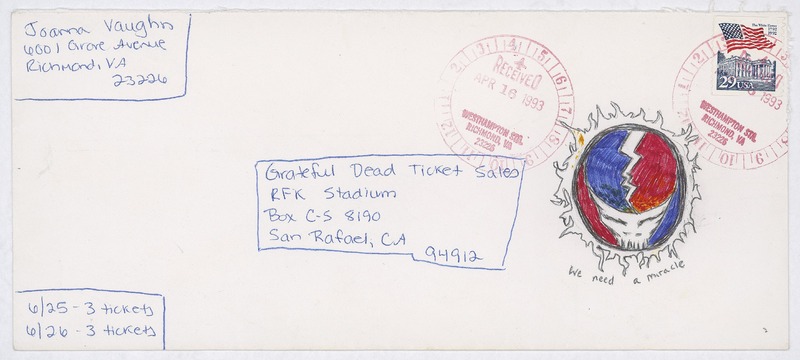 Joanna Vaughn
6001 Grove Avenue
Richmond, VA
23226
RECEIVED
APR 16 1993
WESTHAMPTON STA.
RICHMOND, VA
23226
The White House
29 USA
1993
WESTHAMPTON STA.
RICHMOND, VA
23226
Grateful Dead Ticket Sales
RFK Stadium
Box C-S 8190
San Rafael, CA
94912
We need a miracle
6/25 - 3 tickets
6/26 - 3 tickets